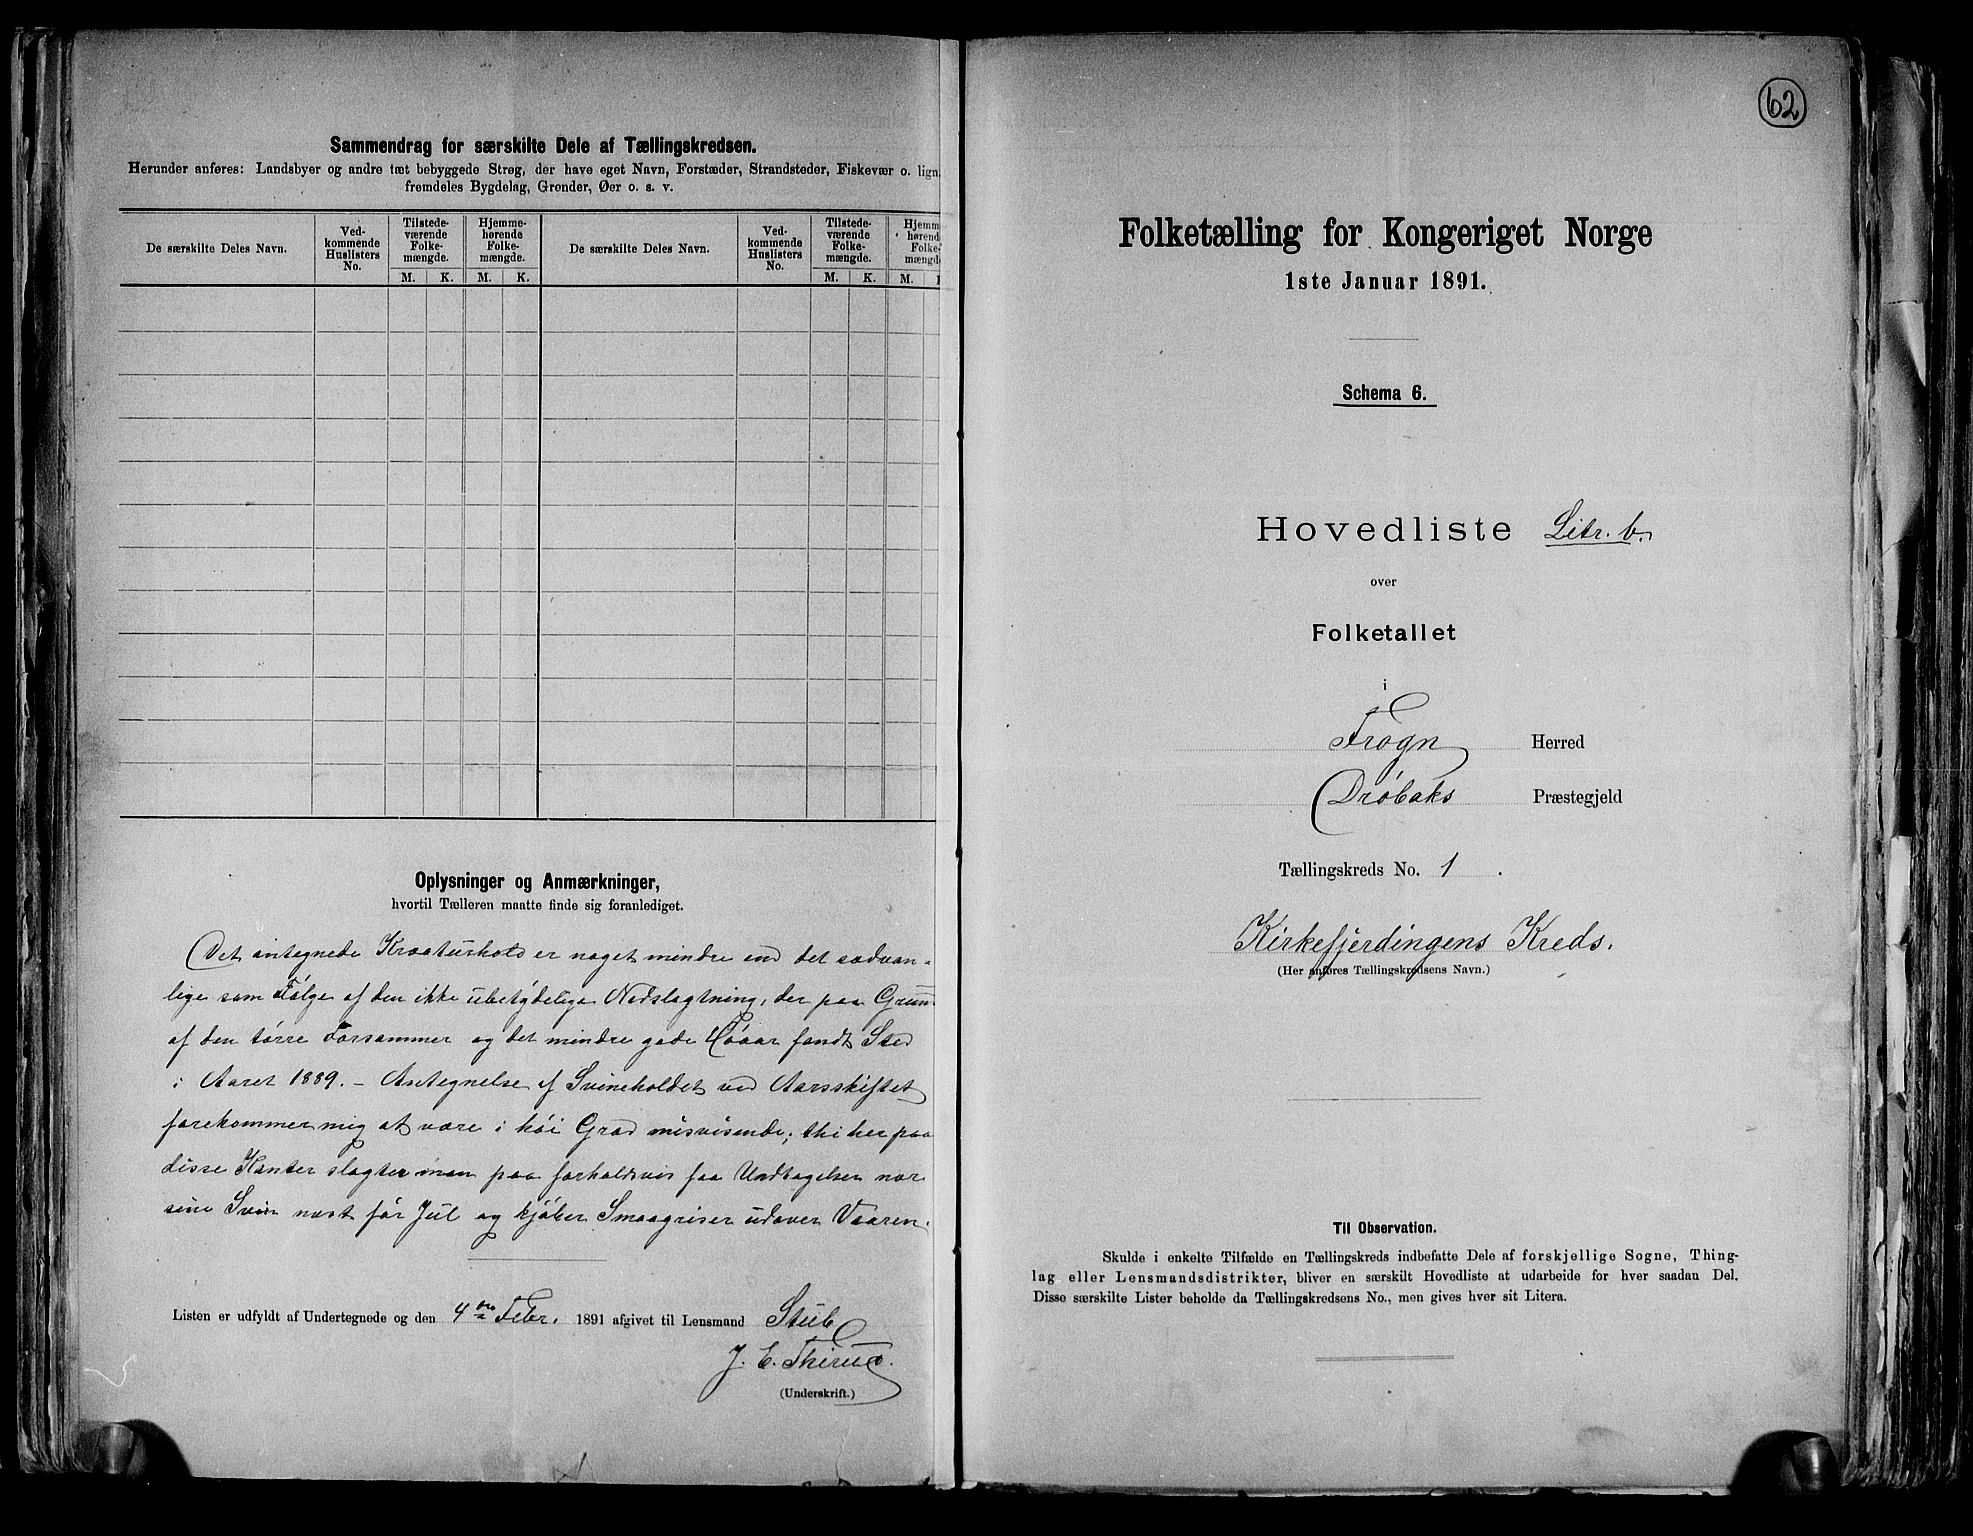 Sammendrag for særskilte Dele af Tællingskredsen.
Herunder anføres: Landsbyer og andre tæt bebyggede Strøg, der have eget Navn, Forstæder, Strandsteder, Fiskevær o. lign.
fremdeles Bygdelag, Grender, Øer o. s. v.
De særskilte Deles Navn.
Ved-
kommende
Huslisters
No.
Tilstede-
værende
Folke-
mængde.
M. K.
Hjemme-
hørende
Folke-
mængde.
M. K.
De særskilte Deles Navn.
Ved-
kommende
Huslisters
No.
Tilstede-
værende
Folke-
mængde.
M. K.
Hjemm
hørend
Folke-
mængde
M.
Oplysninger og Anmærkninger,
hvortil Tælleren maatte finde sig foranlediget.
Det antegnede Kreaturhold er noget mindre end det sædvan-
lige som Følge af den ikke ubetydelige Nedslagtning, der paa Grun
af den tørre Forsommer og det mindre gode Høaar fandt Sted
i Aaret 1889. – Antegnelse af Svineholdet ved Aarsskiftet
forekommer mig at være i høi Grad misvisende; thi her paa
disse Kanter slagter man paa forholdsvis faa Undtagelser nær
sine Svin næst før Jul og kjøber Smaagriser udover Vaaren.
Listen er udfyldt af Undertegnede og den 4de Febr. 1891 afgivet til Lensmand Stub
J. E. Thirud.
(Underskrift.)
62
Folketælling for Kongeriget Norge
1ste Januar 1891.
Schema 6.
Hovedliste Litr. b.
over
Folketallet
i
Frogn Herred
Drøbaks Præstegjeld
Tællingskreds No. 1.
Kirkefjerdingens Kreds.
(Her anføres Tællingskredsens Navn.)
Til Observation.
Skulde i enkelte Tilfælde en Tællingskreds indbefatte Dele af forskjellige Sogne, Thing-
lag eller Lensmandsdistrikter, bliver en særskilt Hovedliste at udarbeide for hver saadan Del.
Disse særskilte Lister beholde da Tællingskredsens No., men gives hver sit Litera.